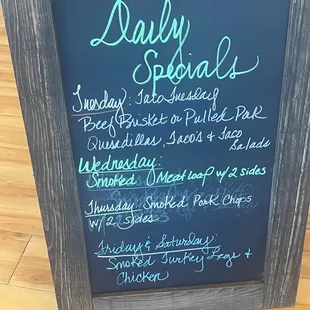 Daily
Specials
Tuesday: Taco Tuesday
Beef Brisket or Pulled Pork
Quesadillas, Taco's & Taco
Salads
Wednesday:
Smoked Meatloaf w/2 sides
Thursday Smoked Pork Chops
w/2 sides
Friday & Saturday:
Smoked Turkey Legs &
Chicken